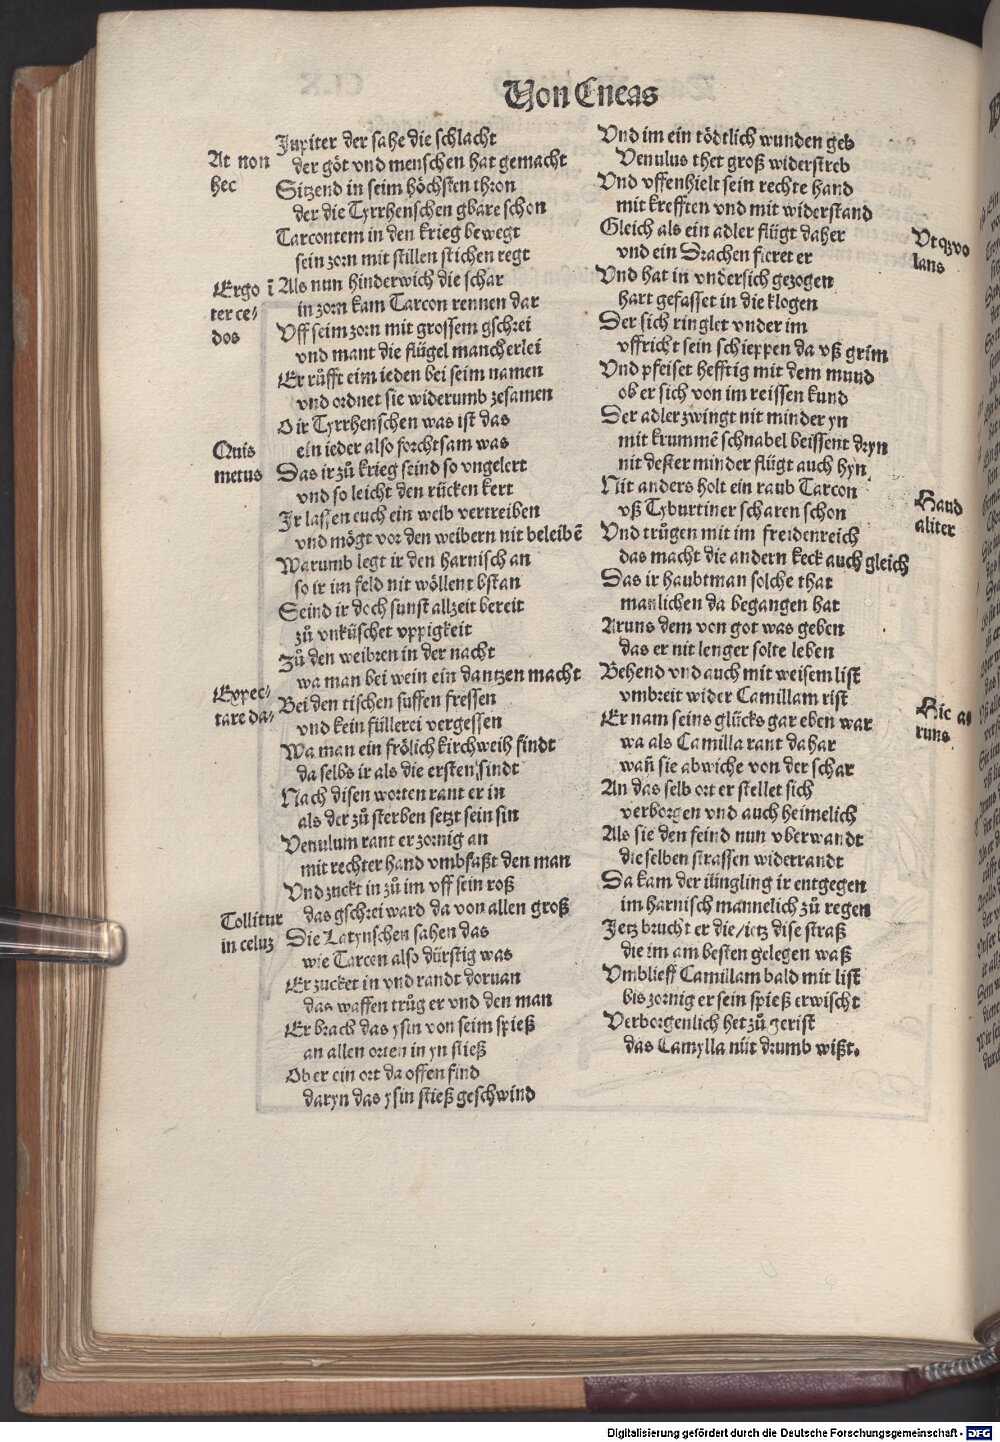 Von Eneas
At non
hec
Ergo ī
ter ce⸗
dos
Quis
metus
Expec⸗
tare da⸗
Tollitur
in celuꝫ
Jupiter der sahe die schlacht
der göt vnd menschen hat gemacht
Sitzend in seim höchsten thron
der die Tyrrhenschen gbare schon
Tarcontem in den krieg bewegt
sein zorn mit stillen stichen regt
Als nun hinderwich die schar
in zorn kam Tarcon rennen dar
Vff seim zorn mit grossem gschrei
vnd mant die flügel mancherlei
Er růfft eim ieden bei seim namen
vnd ordnet sie widerumb zesamen
O ir Tyrrhenschen was ist das
ein ieder also forchtsam was
Das ir zů krieg seind so vngelert
vnd so leicht den rücken kert
Jr lassen euch ein weib vertreiben
vnd mögt vor den weibern nit beleibē
Warumb legt ir den harnisch an
so ir im feld nit wöllent bstan
Seind ir doch sunst allzeit bereit
zů vnküschet vppigkeit
Zů den weibren in der nacht
wa man bei wein ein dantzen macht
Bei den tischen suffen fressen
vnd kein füllerei vergessen
Wa man ein frölich kirchweih findt
da selbs ir als die ersten sindt
Nach disen worten rant er in
als der zů sterben setzt sein sin
Venulum rant er zornig an
mit rechter hand vmbfaßt den man
Vnd zuckt in zů im vff sein roß
das gschrei ward da von allen groß
Die Latynschen sahen das
wie Tarcon also dürstig was
Er zucket in vnd randt doruan
das waffen trůg er vnd den man
Er brach das ysin von seim spieß
an allen orten in yn stieß
Ob er ein ort da offen find
daryn das ysin stieß geschwind
Vnd im ein tödtlich wunden geb
Venulus thet groß widerstreb
Vnd vffenhielt sein rechte hand
mit krefften vnd mit widerstand
Gleich als ein adler flügt daher
vnd ein Drachen fieret er
Vnd hat in vndersich gezogen
hart gefasset in die klogen
Der sich ringlet vnder im
vffricht sein schieppen da vß grim
Vnd pfeiset hefftig mit dem mund
ob er sich von im reissen kund
Der adler zwingt nit minder yn
mit krummē schnabel beissent dryn
nit dester minder flügt auch hyn
Nit anders holt ein raub Tarcon
vß Tyburtiner scharen schon
Vnd trůgen mit im freidenreich
das macht die andern keck auch gleich
Das ir haubtman solche that
manlichen da begangen hat
Aruns dem von got was geben
das er nit lenger solte leben
Behend vnd auch mit weisem list
vmbreit wider Camillam rist
Er nam seins glücks gar eben war
wa als Camilla rant dahar
wañ sie abwiche von der schar
An das selb ort er stellet sich
verborgen vnd auch heimelich
Als sie den feind nun vberwandt
die selben strassen widerrandt
Da kam der iüngling ir entgegen
im harnisch mannelich zů regen
Jetz brucht er die/ietz dise straß
die im am besten gelegen waß
Vmblieff Camillam bald mit list
bis zornig er sein spieß erwischt
Verborgenlich het zů gerist
das Camylla nüt drumb wißt.
Vt ꝙ vo
lans
Haud
aliter
Hic a
runs
Digitalisierung gefördert durch die Deutsche Forschungsgemeinschaft - DFG